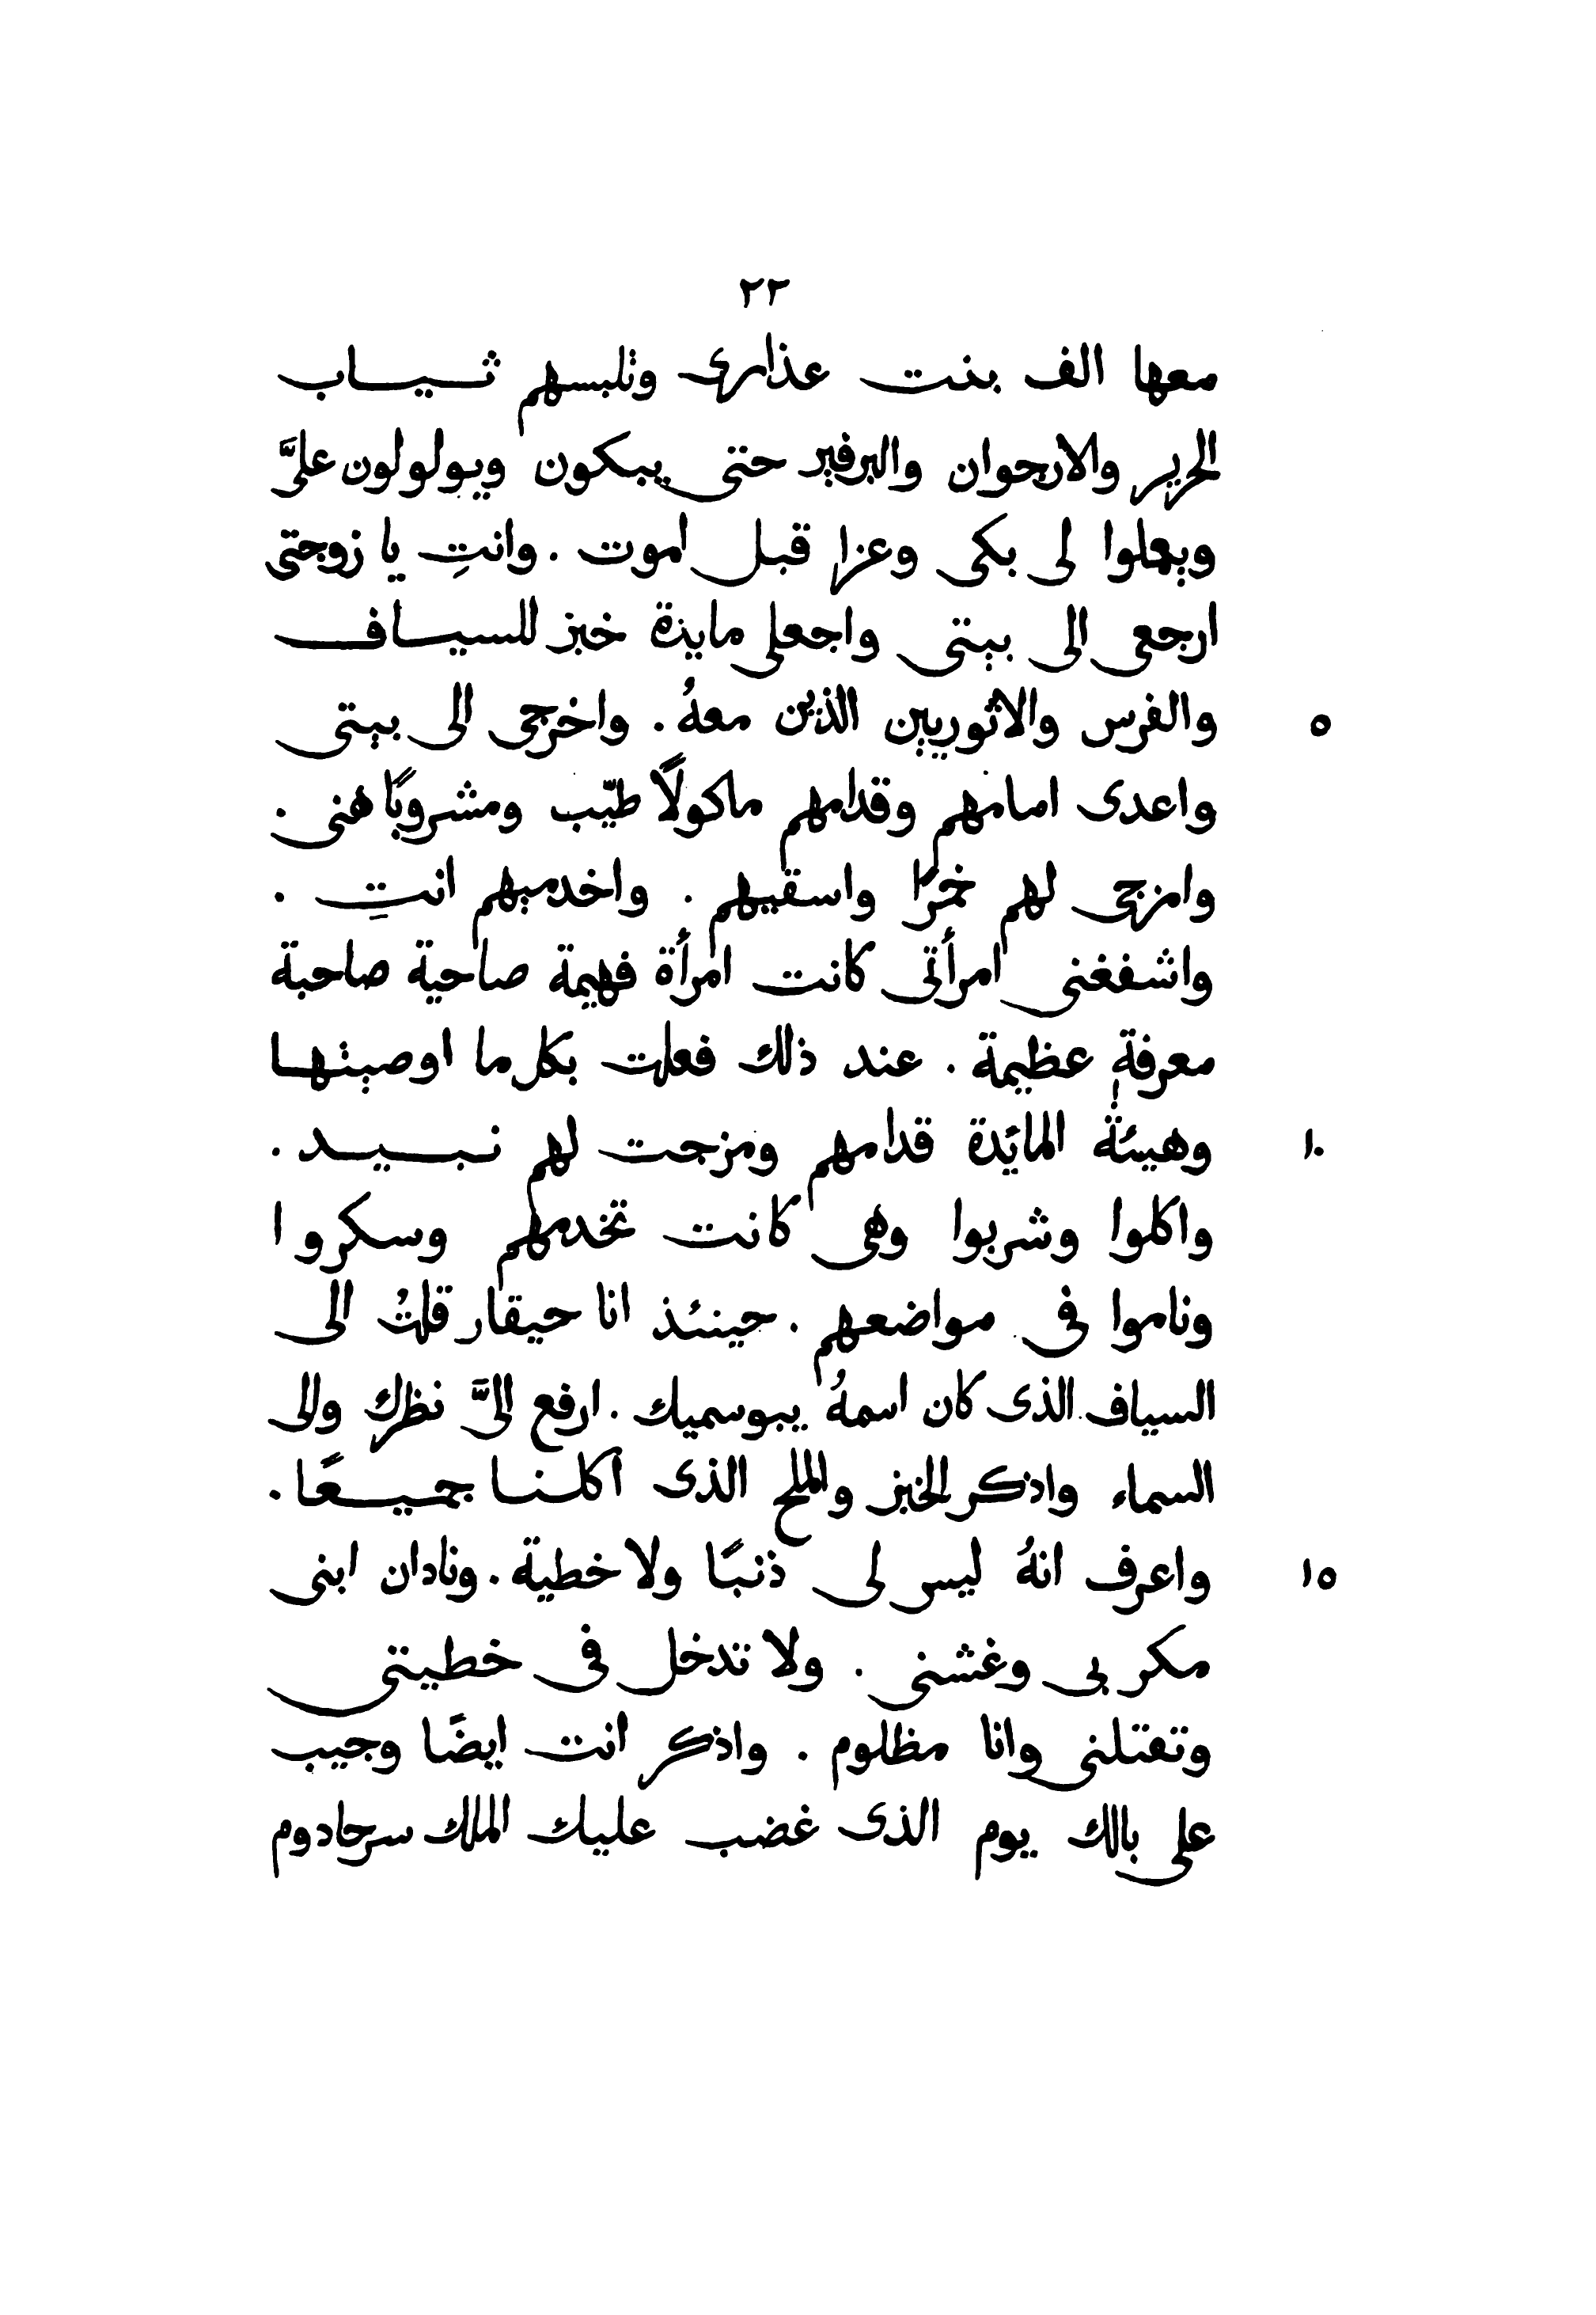 ٢٣
معها الف بنت عذارى وتلبسهم ثياب
الحرير والارجوان والبرفير حتى يبكون ويولولون علىَّ
ويعملوا لى بكى وعزا قبل اموت . وانتِ يا زوجتى
ارجعى الى بيتى واجعلى مايدة خبز للسياف
والفرس والاثوريين الذين معهُ . واخرجى الى بيتى
٥
واعدى امامهم وقدامهم ماكولًا طيّب ومشروبًا هنى .
وامزجى لهم خمرًا واسقيهم . واخدميهم انتِ .
واشفغنى امرأتى كانت امرأة فهيمة صاحية صاحبة
معرفةٍ عظيمة . عند ذلك فعلت بكل ما اوصيتها
وهيئة المائدة قدامهم ومزجت لهم نبيد .
١٠
واكلوا وشربوا وهى كانت تخدمهم وسكروا
وناموا فى مواضعهم . حينئذ انا حيقار قلتُ الى
السياف الذى كان اسمهُ يبوسميك . ارفع الىَّ نظرك والى
السماء واذكر الخبز والملح الذى اكلنا جميعًا .
واعرف انهُ ليس لى ذنبًا ولا خطية . ونادان ابنى
١٥
مكر بى وغشنى . ولا تدخل فى خطيتى
وتقتلنى وانا مظلوم . واذكر انت ايضًا وجيب
على بالك يوم الذى غضب عليك الملك سرحادوم